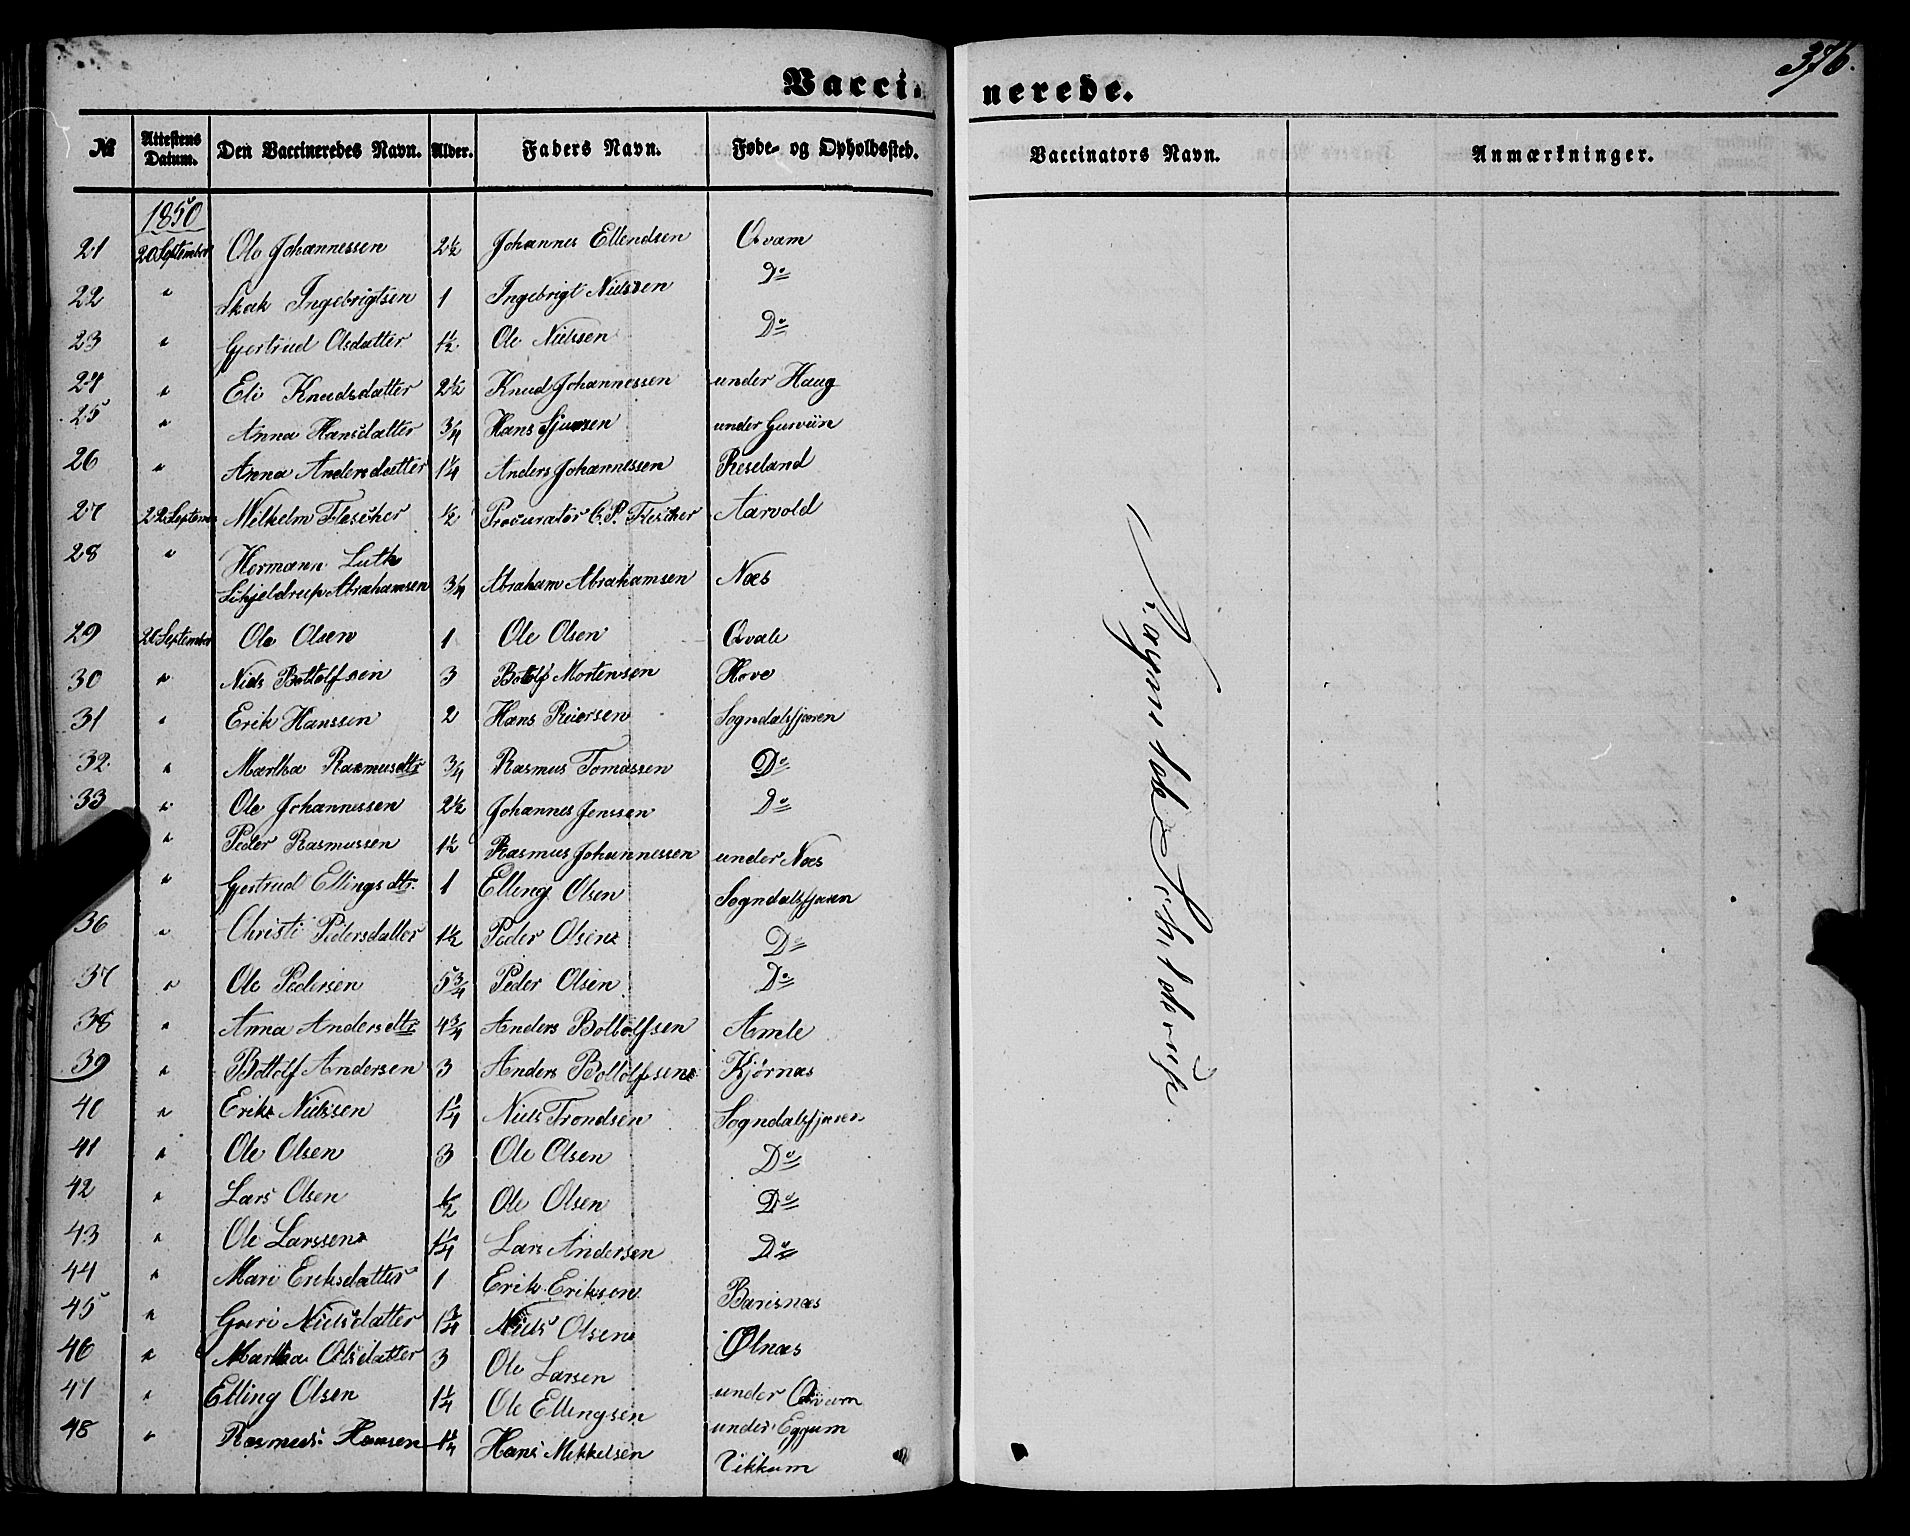 Vaccinerede.
376.
№ Attestens Datum. Den Vaccineredes Navn. Alder. Faders Navn. Føde- og Opholdssted. Vaccinators Navn. Anmærkninger.
1850
21 20 September Ole Johannessen 2½ Johannes Ellendsen Qvam
22 " Skak Ingebrigtsen 1 Ingebrigt Nielsen Do
23 " Gjertrud Olsdatter 1½ Ole Nielsen Do
24 " Eli Knudsdatter 2½ Knud Johannessen under Haug
25 " Anna Hansdatter 3/4 Hans Sjursen under
26 " Anna Andersdatter 1¼ Anders Johannessen Reseland
27 22 Septem Wilhelm Flescher ½ Procurator C. P. Flescher Aarvold
28 " Hermann Luth
Schjeldrup Abrahamsen 3/4 Abraham Abrahamsen Næs
29 20 September Ole Olsen 1 Ole Olsen Qvale
30 " Niels Bottolfsen 3 Botolf Mortensen Hove
31 " Erik Hanssen 2 Hans Reiersen Sogndalsfjæren
32 " Martha Rasmusdtr 3/4 Rasmus Tomassen Do
33 " Ole Johannessen 2½ Johannes Jenssen Do
" Peder Rasmussen 1½ Rasmus Johannessen under Næs
" Gjertrud Ellingsdtr 1 Elling Olsen Sogndalsfjæren
36 " Christi Pedersdatter 1½ Peder Olsen Do
37 " Ole Pedersen 5 3/4 Peder Olsen Do
38 " Anna Andersdtr 4 3/4 Anders Bottolfsen Amle
39 " Bottolf Andersen 3 Anders Bottolfsen Kjørnæs
40 " Erik Nielsen 1¼ Niels Trondsen Sogndalsfjæren
41 " Ole Olsen 3 Ole Olsen Do
42 " Lars Olsen ½ Ole Olsen Do
43 " Ole Larssen 1¼ Lars Andersen Do
44 " Mari Eriksdatter 1 Erik Eriksen Barsnæs
45 " Guri Nielsdatter 1 3/4 Niels Olsen Ølnæs
46 " Martha Olsdatter 3 Ole Larsen under Qvam
47 " Elling Olsen 1¼ Ole Ellingsen under Eggum
48 " Rasmus Hansen 1¼ Hans Mikkelsen Vikkum